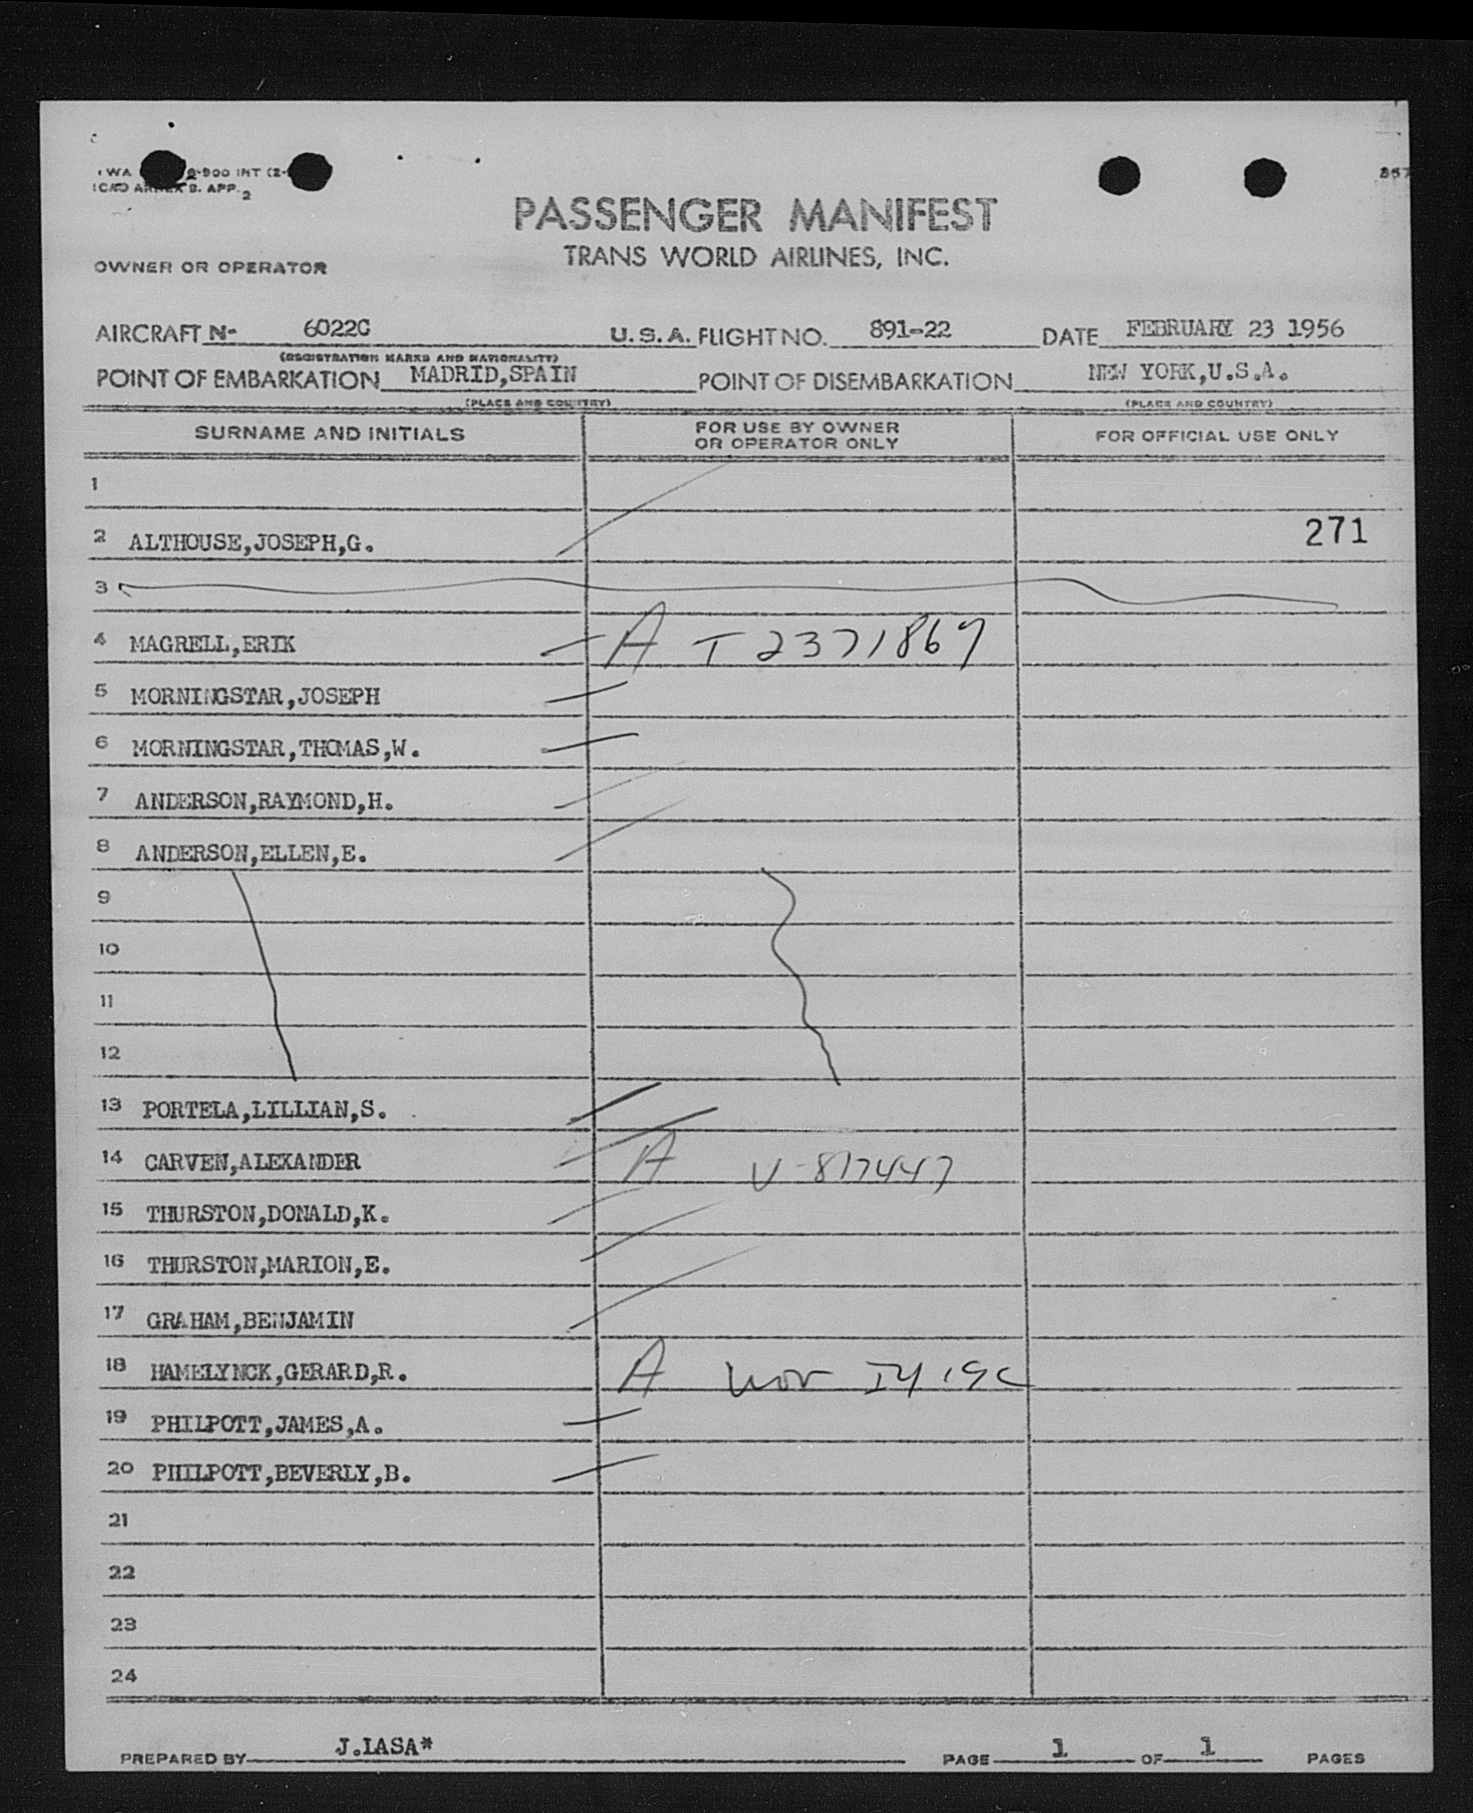 TWA 2-900 INT (2-
ICAO ANNEX 9. APP. 2
357
PASSENGER MANIFEST
TRANS WORLD AIRLINES, INC.
OWNER OR OPERATOR
AIRCRAFT N- 6022C U.S.A. FLIGHT NO. 891-22 DATE FEBRUARY 23 1956
(REGISTRATION MARKS AND NATIONALITY)
POINT OF EMBARKATION MADRID,SPAIN POINT OF DISEMBARKATION NEW YORK,U.S.A.
(PLACE AND COUNTRY) (PLACE AND COUNTRY)
SURNAME AND INITIALS FOR USE BY OWNER OR OPERATOR ONLY FOR OFFICIAL USE ONLY
1
2 ALTHOUSE,JOSEPH,G. 271
3
4 MAGRELL,ERIK A T 2371867
5 MORNINGSTAR,JOSEPH
6 MORNINGSTAR,THOMAS,W.
7 ANDERSON,RAYMOND,H.
8 ANDERSON,ELLEN,E.
9
10
11
12
13 PORTELA,LILLIAN,S.
14 CARVEN,ALEXANDER A V-817447
15 THURSTON,DONALD,K.
16 THURSTON,MARION,E.
17 GRAHAM,BENJAMIN
18 HAMELYNCK,GERARD,R. A
19 PHILPOTT,JAMES,A.
20 PHILPOTT,BEVERLY,B.
21
22
23
24
PREPARED BY J.IASA* PAGE 1 OF 1 PAGES